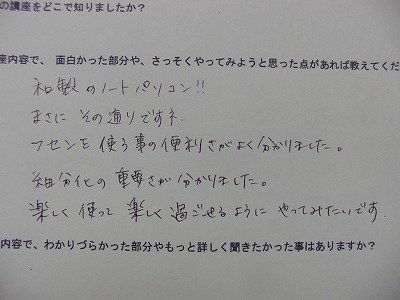 の講座をどこで知りましたか？
座内容で、面白かった部分や、さっそくやってみようと思った点があれば教えてくだ
和製のノートパソコン!!
まさに その通りですネ.
フセンを 使う事の便利さがよく分かりました。
細分化の重要さが分かりました。
楽しく使って 楽しく過ごせるように やってみたいです.
内容で、わかりづらかった部分やもっと詳しく聞きたかった事はありますか？